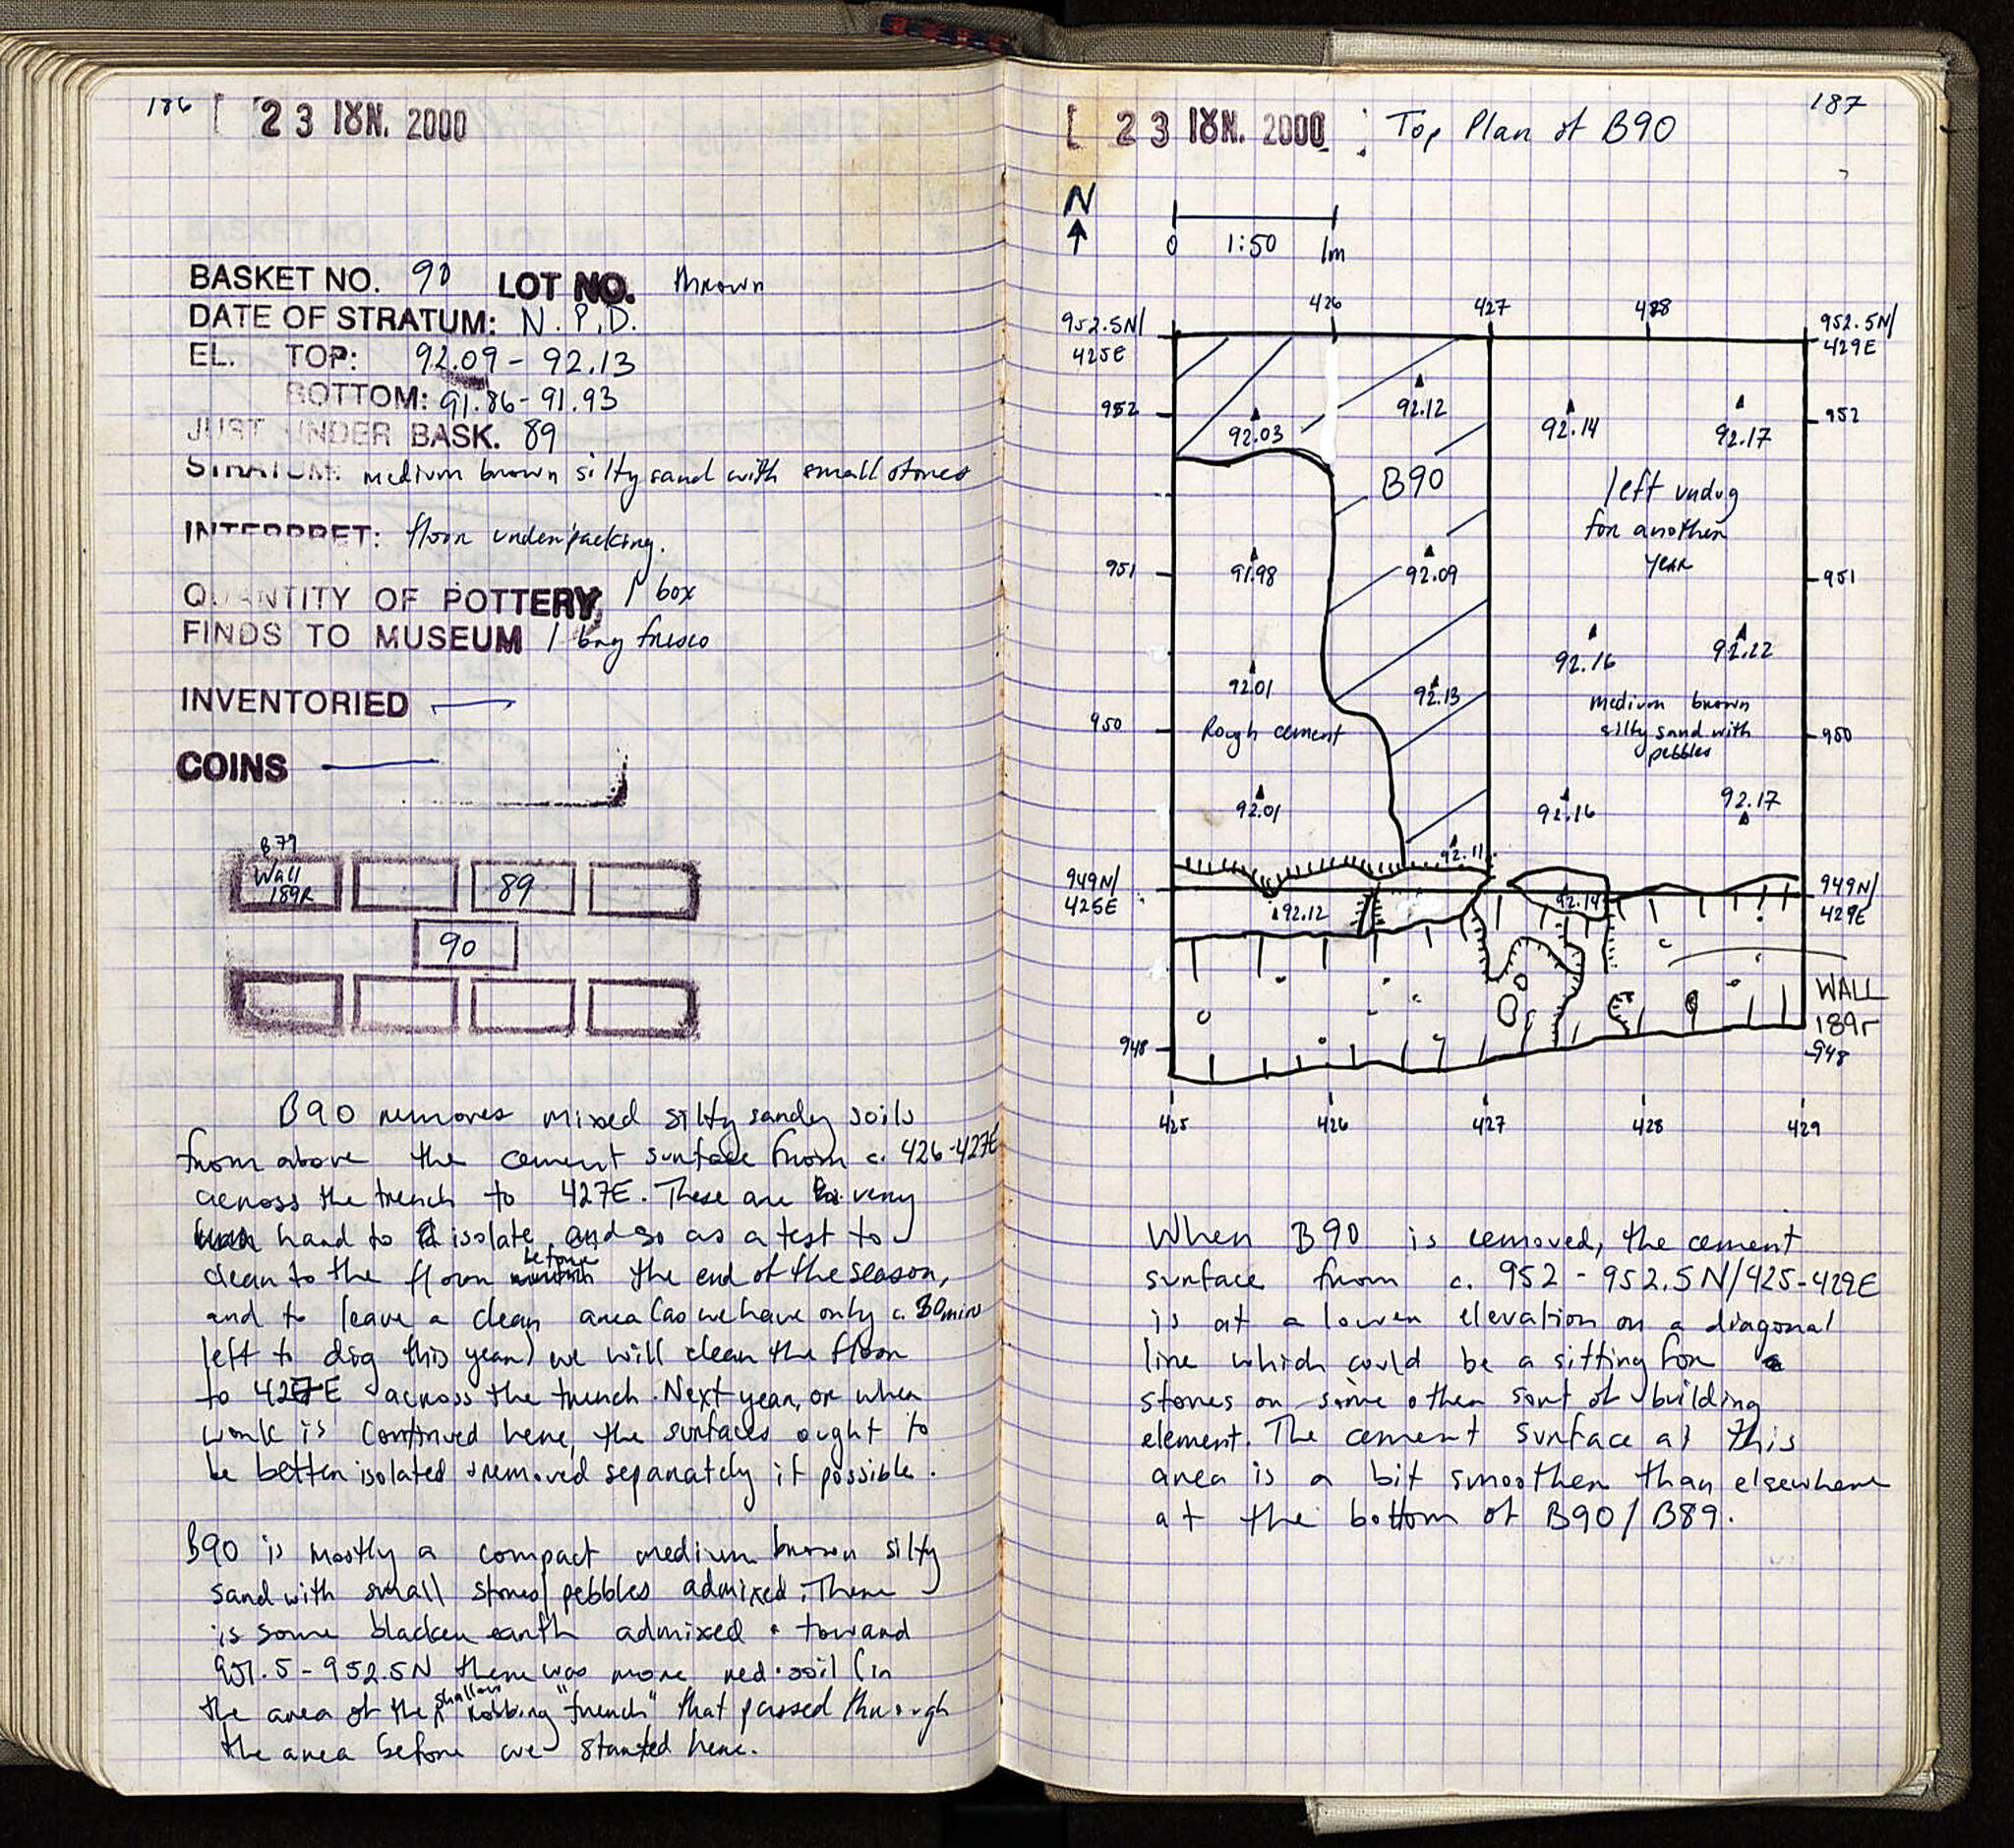 186
[ 23 ΙȢΝ. 2000
BASKET NO. 90 LOT NO. thrown
DATE OF STRATUM: N.P.D.
EL. TOP: 92.09 - 92.13
BOTTOM: 91.86 - 91.93
JUST UNDER BASK. 89
STRATUM: medium brown silty sand with small stones
INTERPRET: floor underpacking.
QUANTITY OF POTTERY, 1 box
FINDS TO MUSEUM 1 bag fresco
INVENTORIED —
COINS —
B79
Wall
189R
89
90
B90 removes mixed silty sandy soils
from above the cement surface from c. 426-427E
across the trench to 427E. These are very
hard to isolate, and so as a test to
clean to the floor before the end of the season,
and to leave a clean area (as we have only c. 30 mins
left to dig this year) we will clean the floor
to 427E across the trench. Next year, or when
work is continued here, the surfaces ought to
be better isolated & removed separately if possible.
B90 is mostly a compact medium brown silty
sand with small stones/pebbles admixed. There
is some blacker earth admixed & toward
951.5 - 952.5N there was more red soil (in
the area of the shallow robbing "trench" that passed through
the area before we started here.
187
[ 23 ΙȢΝ. 2000 ] Top Plan of B90
N
0 1:50 1m
426 427 428
952.5N/
425E
952.5N/
429E
952
92.03
92.12
92.14
92.17
952
B90
left undug
for another
year
951
91.98
92.09
951
92.16
92.22
92.01
92.13
medium brown
silty sand with
pebbles
950
Rough cement
950
92.01
92.16
92.17
92.11
949N/
425E
92.12
92.14
949N/
429E
WALL
189r
948
948
425 426 427 428 429
When B90 is removed, the cement
surface from c. 952 - 952.5N/425-429E
is at a lower elevation on a diagonal
line which could be a sitting for
stones or some other sort of building
element. The cement surface at this
area is a bit smoother than elsewhere
at the bottom of B90/B89.